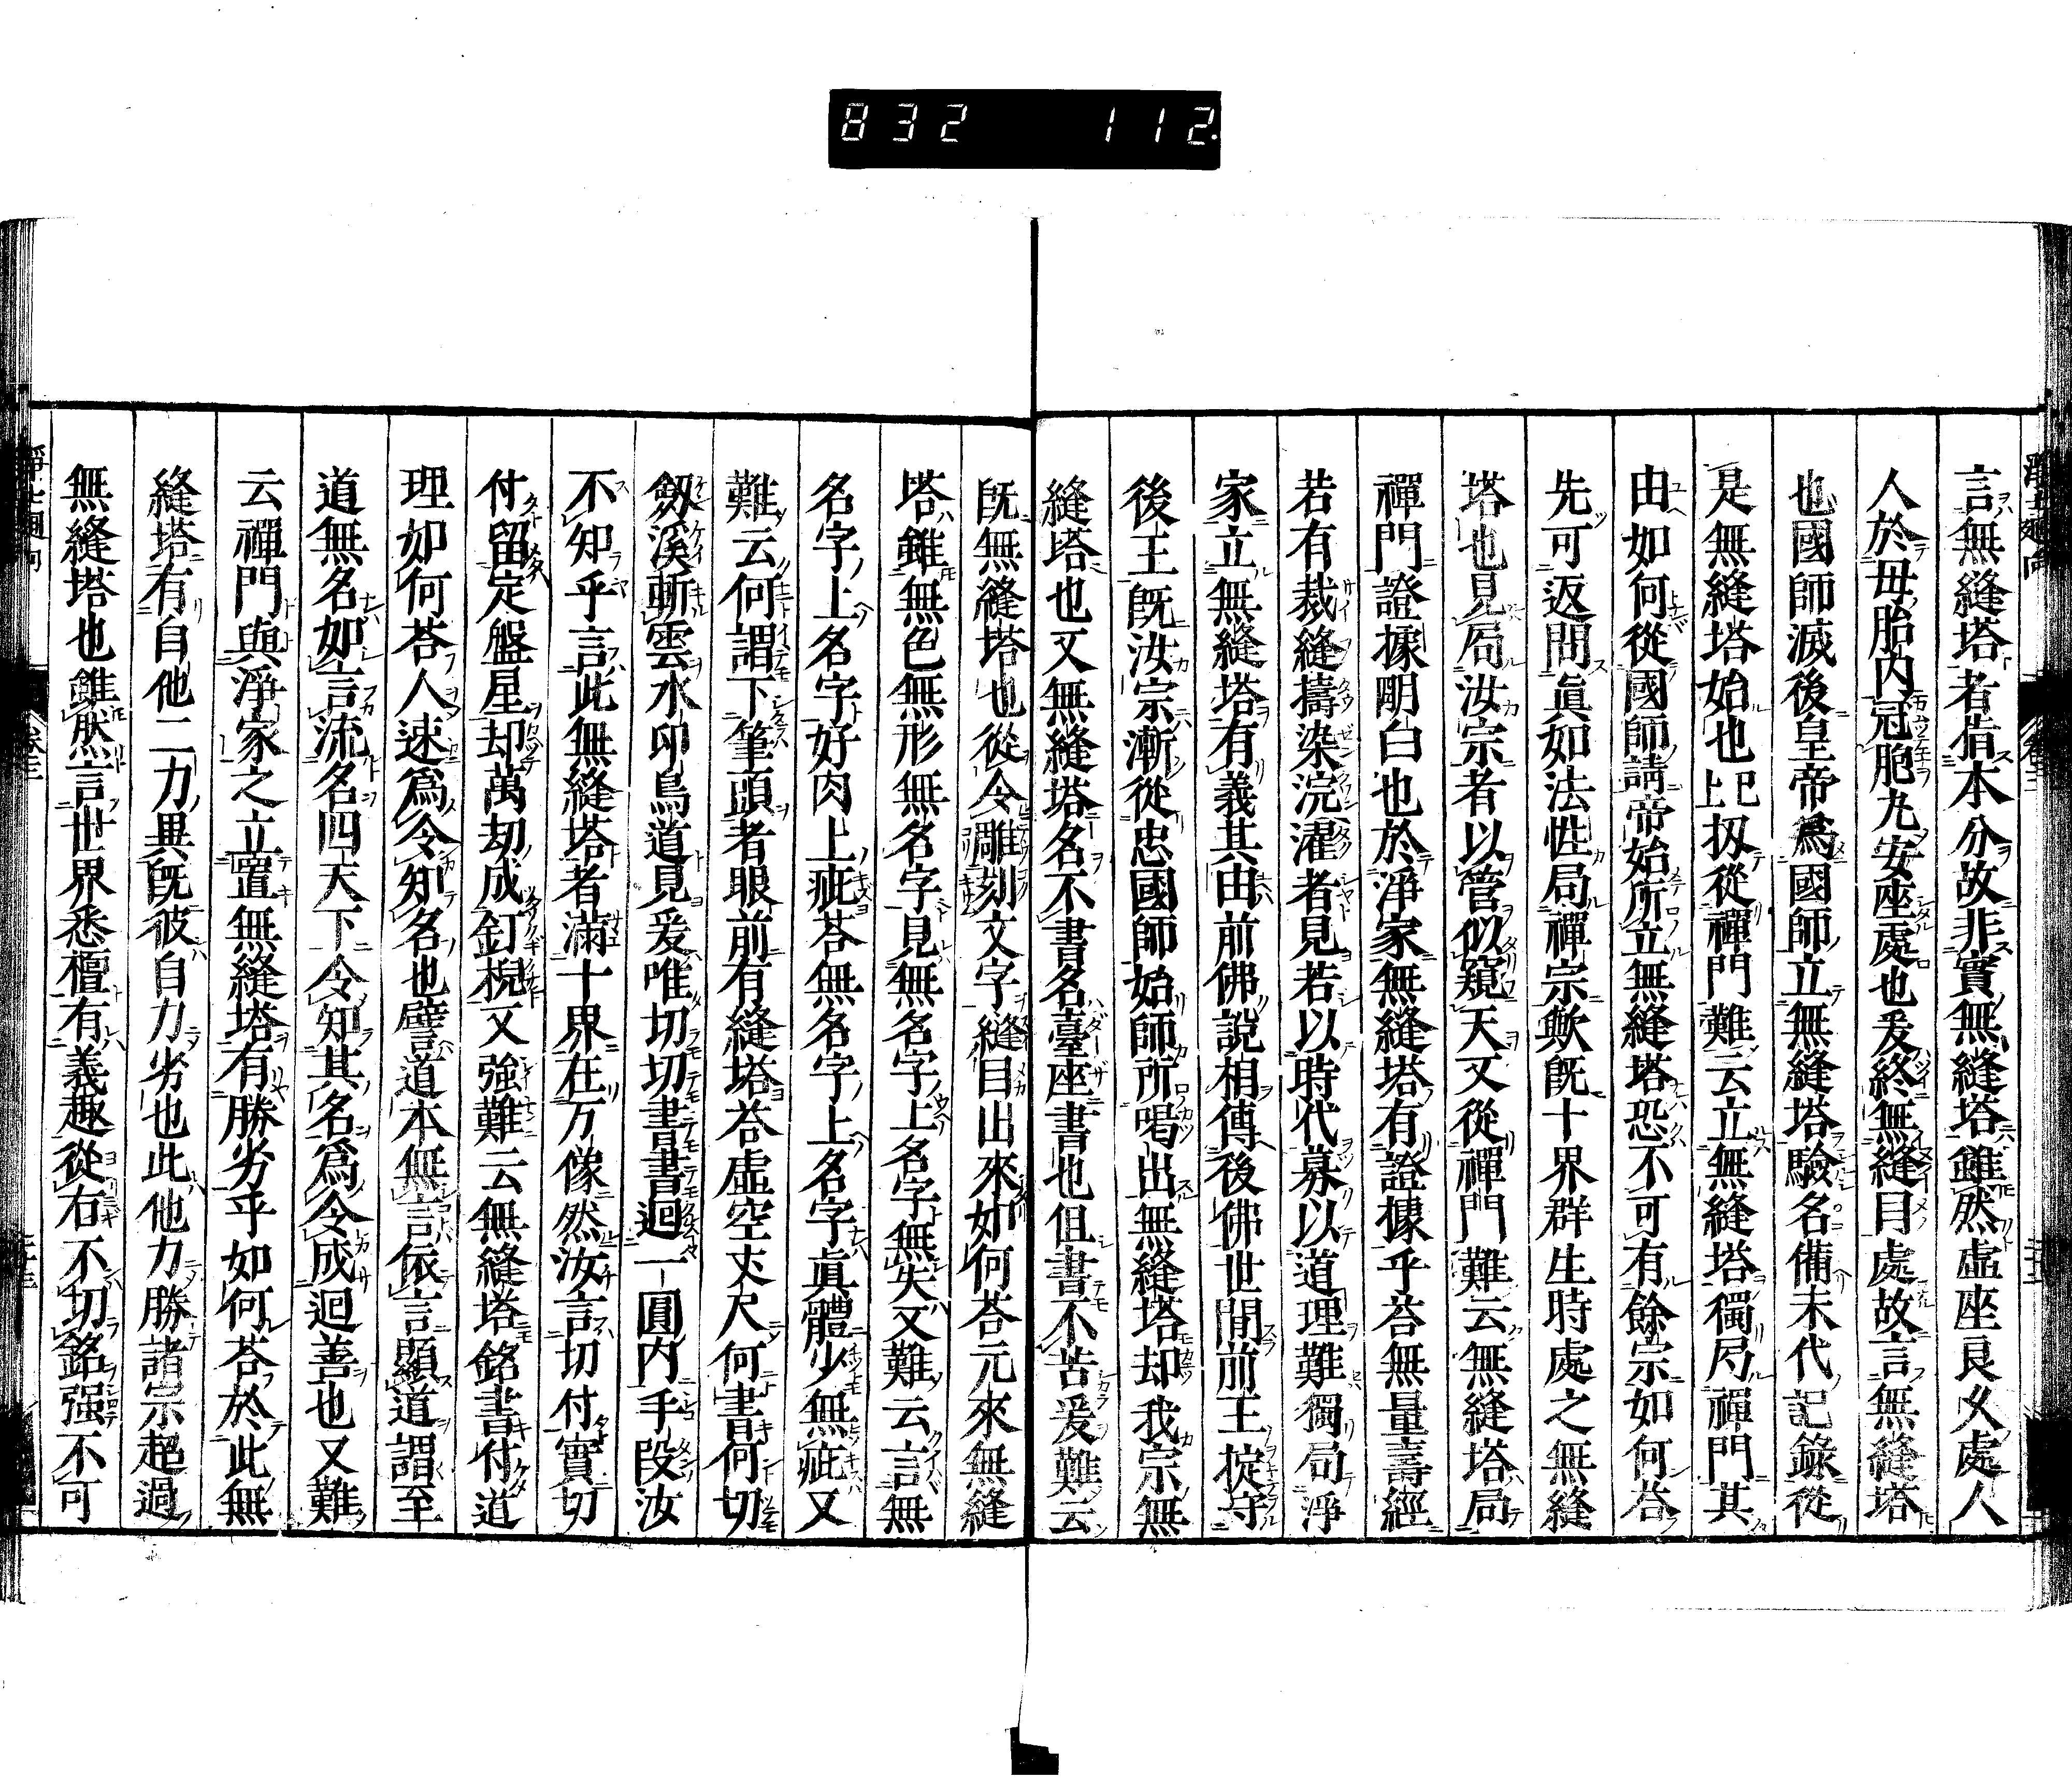 832 112
言無縫塔者指本分故非實無縫塔雖然虛座良久處人
人於母胎内冠胞衣安座處也爰終無縫目處故言無縫塔
也國師滅後皇帝爲國師立無縫塔驗名備末代記錄從
是無縫塔始也已上扨從禪門難云立無縫塔獨局禪門其
由如何從國師請帝始所立無縫塔恐不可有餘宗如何荅
先可返問眞如法性局禪宗歟既十界群生時處之無縫
塔也見局汝宗者以管似窺天又從禪門難云無縫塔局
禪門證據明白也於淨家無縫塔有證據乎荅無量壽經
若有裁縫擣染浣濯者見若以時代募以道理難獨局淨
家立無縫塔有義其由前佛說相傳後佛世間前王掟守
後王既汝宗漸從忠國師始師所喝出無縫塔却我宗無
縫塔也又無縫塔名不書名臺座書也但書不苦爰難云
既無縫塔也從令雕刻文字縫目出來如何荅元來無縫
塔雖無色無形無名字見無名字上名字無失又難云言無
名字上名字好肉上疵荅無名字上名字眞體少無疵又
難云何謂下筆頭者眼前有縫塔荅虛空丈尺何書何切
劔溪斬雲水卬鳥道見爰唯切切書書迴一圓内手段汝
不知乎言此無縫塔者滿十界在万像然汝言切付實切
付留定盤星却萬劫成釘棿又強難云無縫塔銘書付道
理如何荅人速爲令知名也譬道本無言依言顯道謂至
道無名如言流名四天下令知其名爲令成迴善也又難
云禪門與淨家之立置無縫塔有勝劣乎如何荅於此無
縫塔有自他二力異既彼自力劣也此他力勝諸宗超過
無縫塔也雖然言世界悉檀有義趣從右不切銘强不可